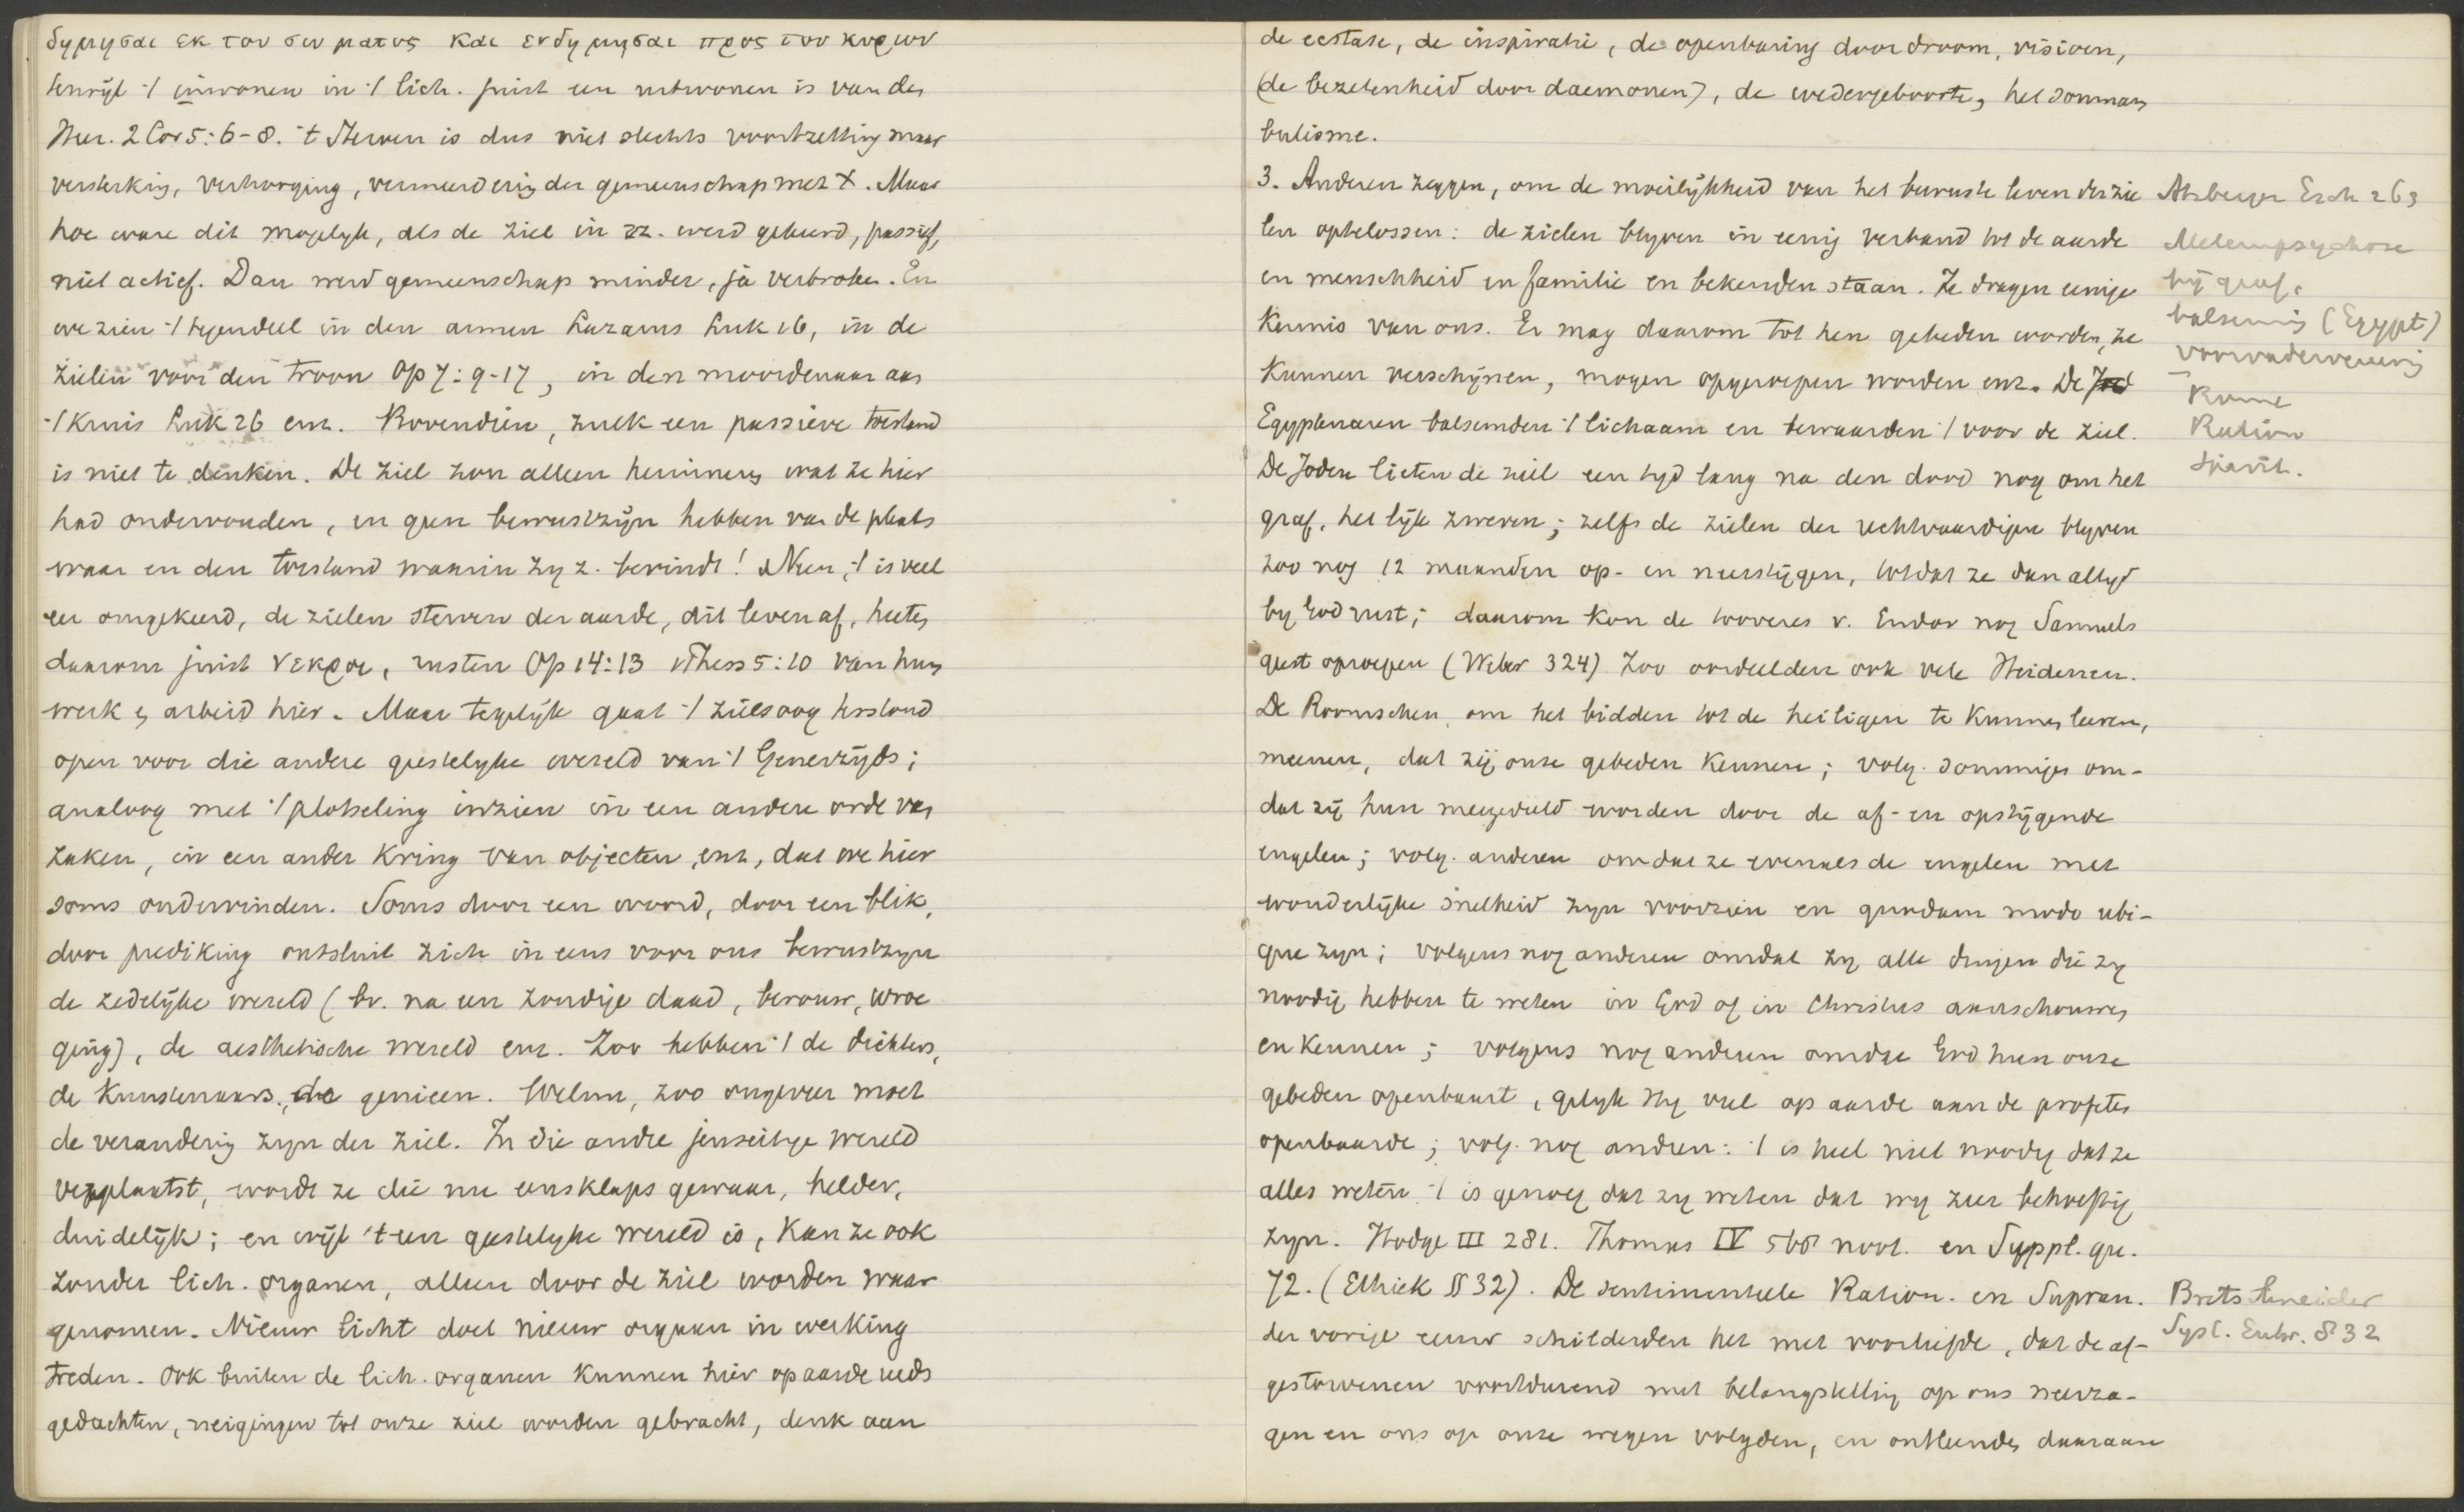 δημησαι εκ του σωματος και ενδημησαι προς τον κυριον
terwijl 't inwonen in 't lich. juist een uitwonen is van den
Heer. 2 Cor 5:6-8. 't Sterven is dus niet slechts voortzetting maar
versterking, verhooging, vermeerdering der gemeenschap met X. Maar
hoe ware dit mogelyk, als de ziel in zz. werd gekeerd, passief,
niet actief. Dan werd gemeenschap minder, ja verbroken. En
we zien 't tegendeel in den armen Lazarus Luk 16, in de
zielen voor den troon Op 7:9-17, in den moordenaar aan
't kruis Luk 26 enz. Bovendien, zulk een passieve toestand
is niet te denken. De ziel zou alleen herinnering wat ze hier
had ondervonden, en geen bewustzijn hebben van de plaats
waar en den toestand waarin zy z. bevindt! Neen, 't is veel
eer omgekeerd, de zielen sterven der aarde, dit leven af, heeten
daarom juist νεκροι, rusten Op 14:13 1Thess 5:10 van hun
werk en arbeid hier. Maar tegelijk gaat 't zielsoog
open voor die andere geestelyke wereld van 't Generzijds;
analoog met 't plotseling inzien in een andere orde van
zaken, in een ander kring van objecten, enz, dat we hier
soms ondervinden. Soms door een woord, door een blik,
door prediking ontsluit zich in eens voor ons bewustzyn
de zedelijke wereld (bv. na een zondige daad, berouw, wroe
ging), de aesthetische wereld enz. Zoo hebben 't de dichters,
de kunstenaars, de genieen. Welnu, zoo ongeveer moet
de verandering zyn der ziel. In die andre jenseitige wereld
verplaatst, wordt ze die nu eensklaps gewaar, helder,
duidelijk; en wijl 't een geestelyke wereld is, kan ze ook
zonder lich. organen, alleen door de ziel worden waar
genomen. Nieuw licht doet nieuw orgaan in werking
treden. Ook buiten de lich. organen kunnen hier op aarde reeds
gedachten, neigingen tot onze ziel worden gebracht, denk aan
de ecstase, de inspiratie, de openbaring door droom, visioen,
(de bezetenheid door daemonen), de wedergeboorte, het somnam
bulisme.
3. Anderen zeggen, om de moeilykheid van het bewuste leven der zie
len optelossen: de zielen blyven in eenig verband tot de aarde
en menschheid en familie en bekenden staan. Ze dragen eenige
kennis van ons. Er mag daarom tot hen gebeden worden, ze
kunnen verschijnen, mogen opgeroepen worden enz. De
Egyptenaren balsemden 't lichaam en bewaarden 't voor de ziel.
De Joden lieten de ziel een tyd lang na den dood nog om het
graf, het lijk zweven; zelfs de zielen der rechtvaardigen blyven
zoo nog 12 maanden op- en neerstijgen, totdat ze dan altyd
by God rust; daarom kon de toveres v. Endor nog Samuels
geest oproepen (Weber 324) Zoo oordeelden ook vele Heidenen.
De Roomschen, om het bidden tot de heiligen te kunnen leeren,
meenen, dat zij onze gebeden kennen; volg. sommigen om-
dat zij hun meegedeeld worden door de af- en opstijgende
engelen; volg. anderen omdat ze evenals de engelen met
wonderlijke snelheid zyn voorzien en quodam modo ubi-
que zyn; volgens nog anderen omdat zy alle dingen die zy
noodig hebben te weten in God of in Christus aanschouwen
en kennen; volgens nog anderen omdat God hun onze
gebeden openbaart, gelyk Hy veel op aarde aan de profeten
openbaarde; volg. nog andren: 't is heel niet noodig dat ze
alles weten 't is genoeg dat zy weten dat wy zeer behoeftig
zyn. Hodge III 281. Thomas IV noot. en Suppl. qu.
72. (Ethiek § 32). De sentimenteele Ration. en Supran.
der vorige eeuw schilderden het met voorliefde, dat de af-
gestorvenen voortdurend met belangstelling op ons neerza-
gen en ons op onze wegen volgden, en ontleenden daaraan
Atzberger Esch 263
Metempsychose
bij graf.
balseming (Egypt)
voorvadervereering
Rome
Ration
Spirit.
Bretschneider
Syst. Entw. § 32